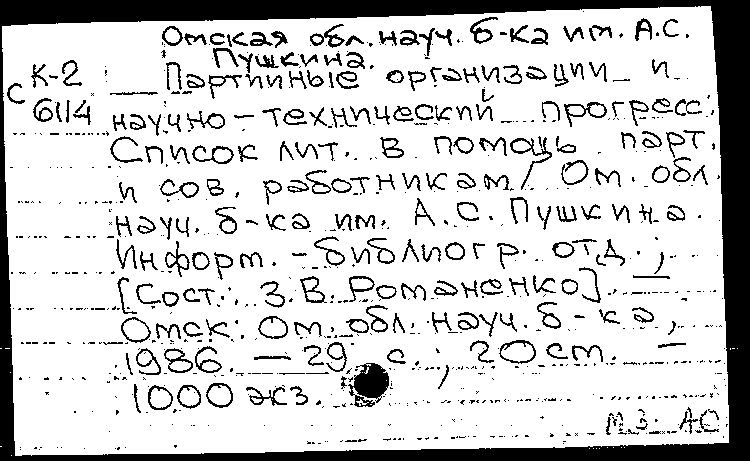 Омская обл. науч. б-ка им. А.С.
Пушкина.
К-2 Партийные организации и
с 6114 научно-технический прогресс:
Список лит. в помощь парт.
и сов. работникам / Ом. обл.
науч. б-ка им. А.С. Пушкина.
Информ.-библиогр. отд.;
[Сост.: З.В. Романенко]. —
Омск: Ом. обл. науч. б-ка,
1986. — 29 с.; 20 см. —
1000 экз.
М.З. АС